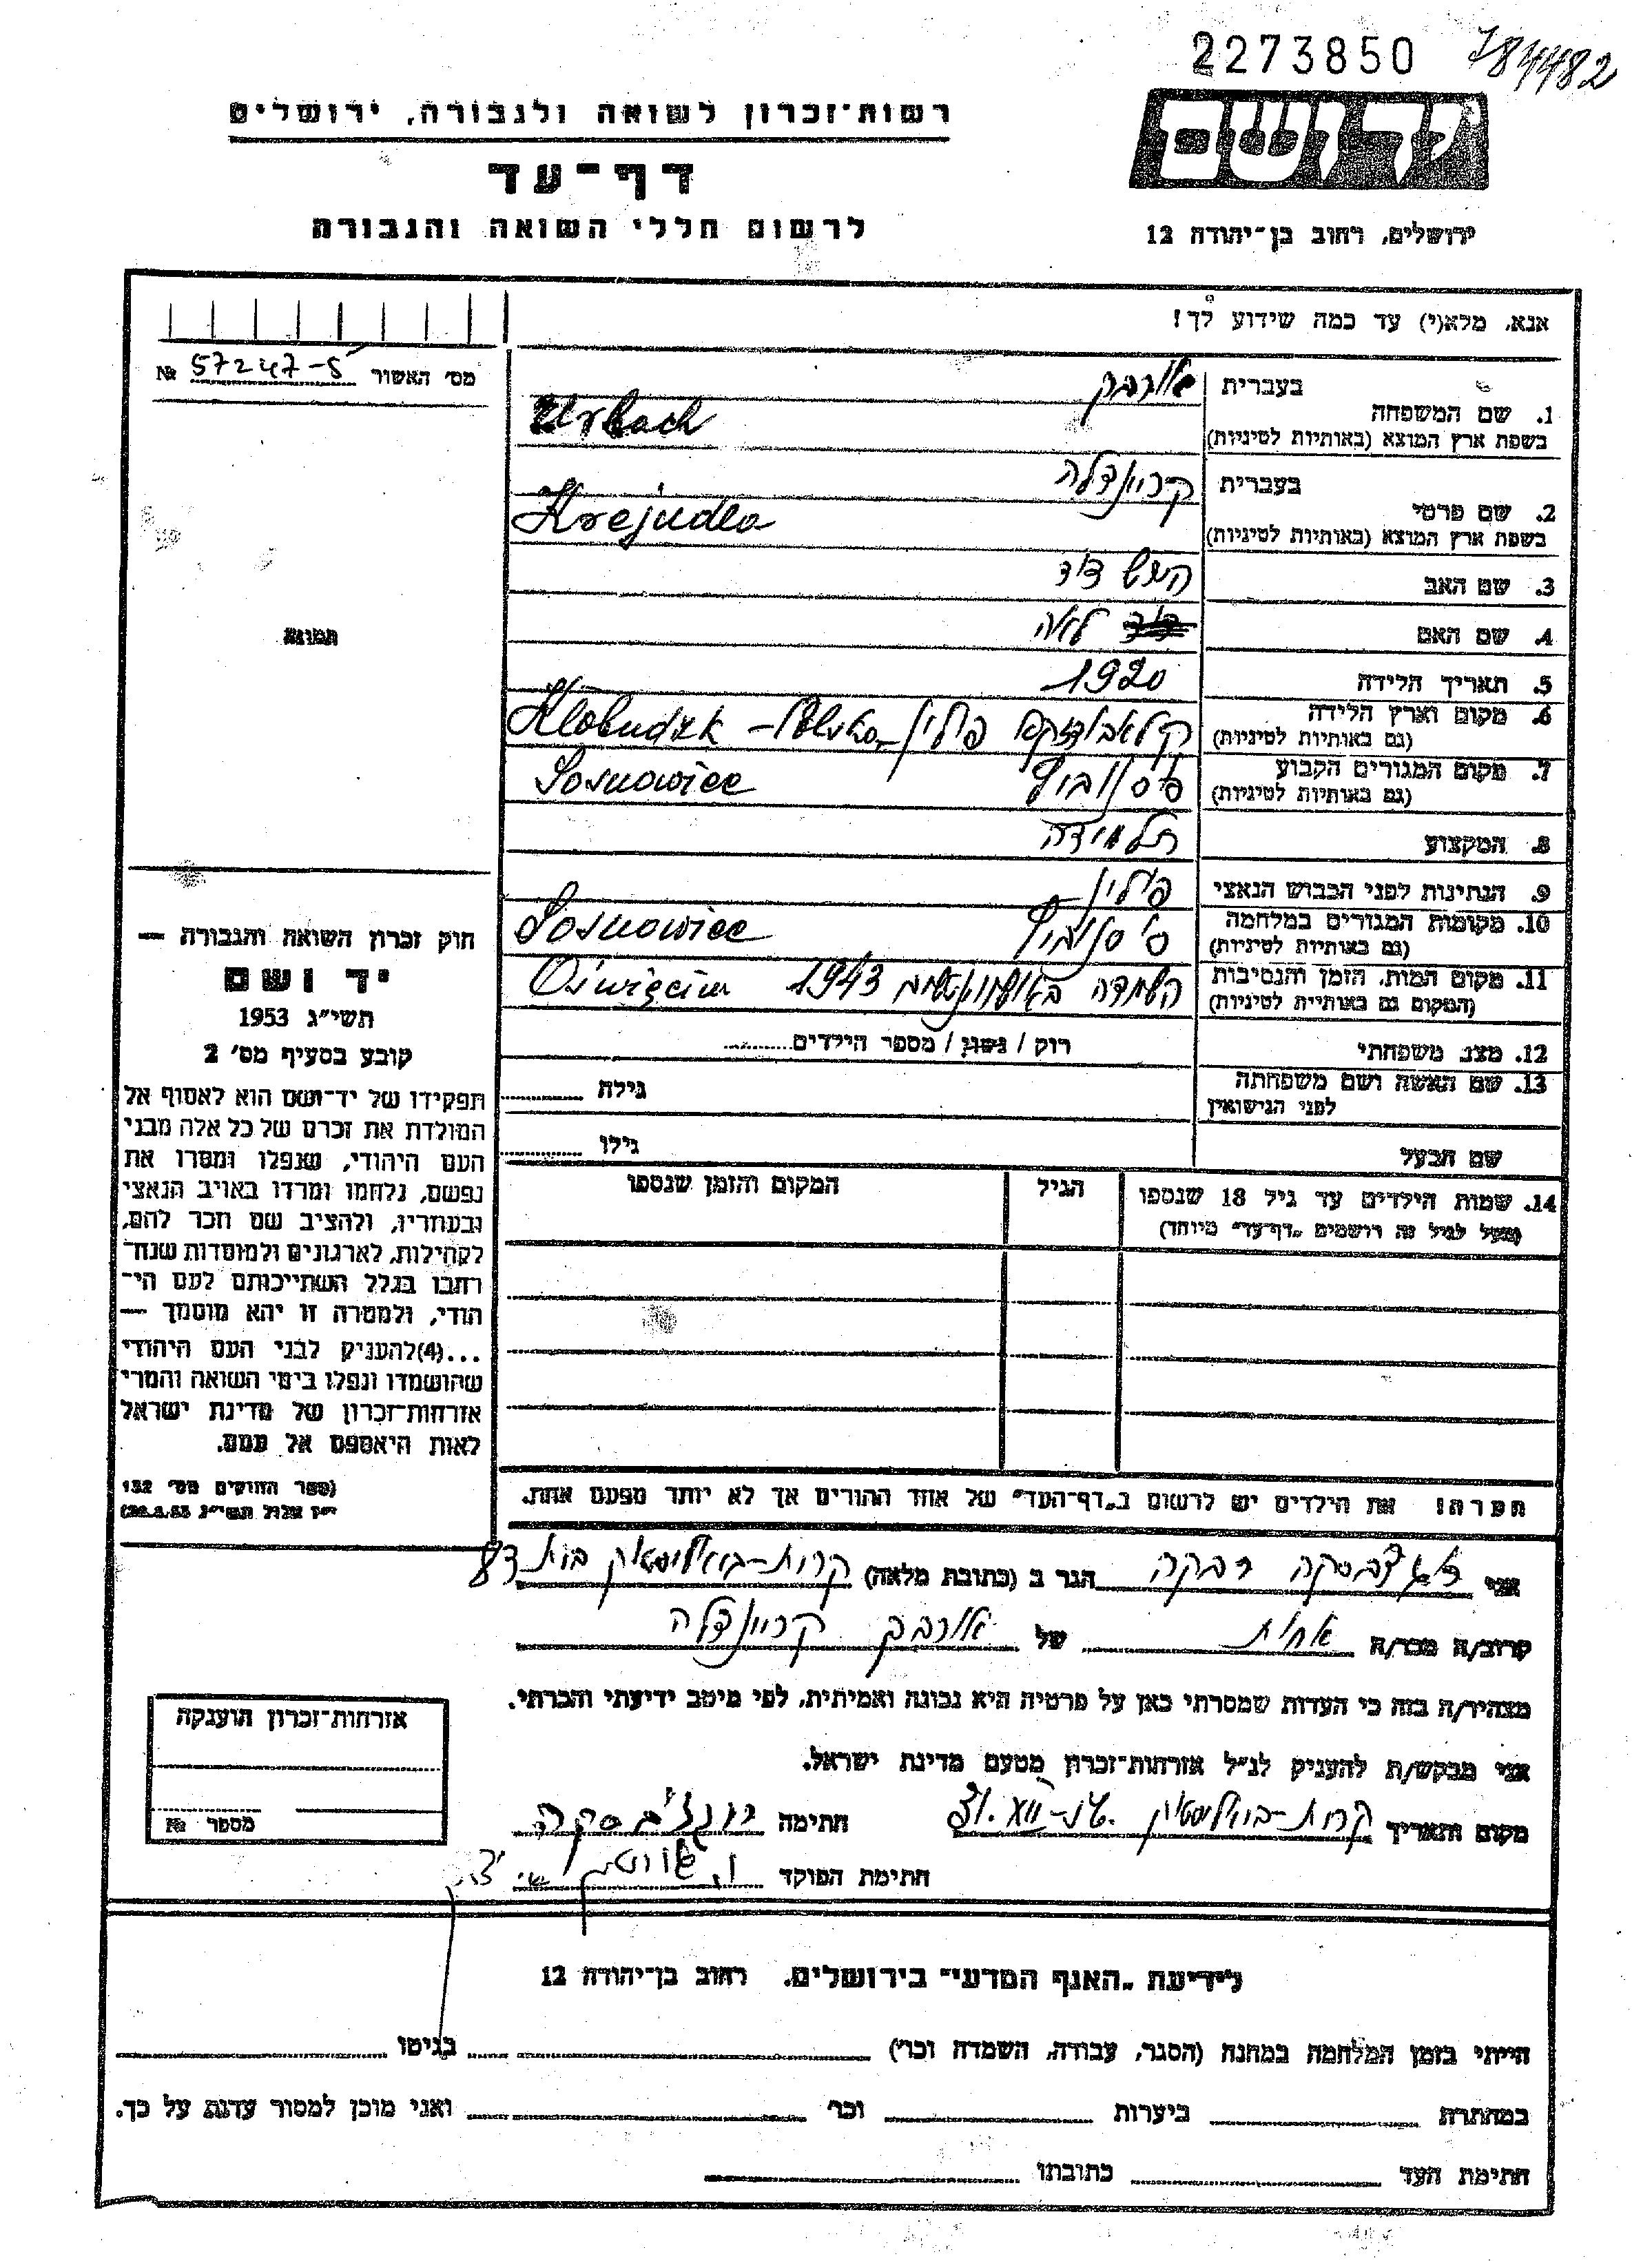 2273850 784482
רשות־זכרון לשואה ולגבורה, ירושלים
דף־עד
לרשום חללי השואה והגבורה
ירושלים, רחוב בן־יהודה 12
אנא, מלא(י) עד כמה שידוע לך!
מס׳ האשור № 57247-5
1. שם המשפחה בעברית אורבך
בשפת ארץ המוצא (באותיות לטיניות) Urbach
2. שם פרטי בעברית קריינדלה
בשפת ארץ המוצא (באותיות לטיניות) Krejndla
3. שם האב הערש דוד
4. שם האם לאה
5. תאריך הלידה 1920
6. מקום וארץ הלידה פולין Klobudzk - Polska
(גם באותיות לטיניות)
7. מקום המגורים הקבוע Sosnowiec
(גם באותיות לטיניות)
8. המקצוע תלמידה
9. הנתינות לפני הכבוש הנאצי פולין
10. מקומות המגורים במלחמה Sosnowiec
(גם באותיות לטיניות)
11. מקום המות, הזמן והנסיבות השמדה 1943 Oświęcim
(המקום גם באותיות לטיניות)
12. מצב משפחתי רוק / נשוי / מספר הילדים
13. שם האשה ושם משפחתה גילה
לפני הנישואין
שם הבעל גילו
14. שמות הילדים עד גיל 18 שנספו הגיל המקום והזמן שנספו
(מעל לגיל זה רושמים "דף־עד" מיוחד)
תמונה
חוק זכרון השואה והגבורה —
יד ושם
תשי״ג 1953
קובע בסעיף מס׳ 2
תפקידו של יד־ושם הוא לאסוף אל
המולדת את זכרם של כל אלה מבני
העם היהודי, שנפלו ומסרו את
נפשם, נלחמו ומרדו באויב הנאצי
ובעוזריו, ולהציב שם וזכר להם,
לקהילות, לארגונים ולמוסדות שנח־
רבו בגלל השתייכותם לעם הי־
הודי, ולמטרה זו יהא מוסמך —
...(4) להעניק לבני העם היהודי
שהושמדו ונפלו בימי השואה והמרי
אזרחות־זכרון של מדינת ישראל
לאות היאספם אל עמם.
(ספר החוקים מס׳ 132
הערה! את הילדים יש לרשום ב"דף־העד" של אחד ההורים אך לא יותר מפעם אחת.
אני רבקה הגר ב (כתובת מלאה)
קרוב/ה מכר/ה אחות של אורבך קריינדלה
מצהיר/ה בזה כי העדות שמסרתי כאן על פרטיה היא נכונה ואמיתית, לפי מיטב ידיעתי והכרתי.
אני מבקש/ת להעניק לנ״ל אזרחות־זכרון מטעם מדינת ישראל.
מקום ותאריך חתימה
חתימת הפוקד
אזרחות־זכרון הוענקה
מספר №
לידיעת "האגף המדעי" בירושלים, רחוב בן־יהודה 12
הייתי בזמן המלחמה במחנה (הסגר, עבודה, השמדה וכו׳) בגיטו
במחתרת ביערות וכו׳ ואני מוכן למסור עדות על כך.
חתימת העד כתובתו